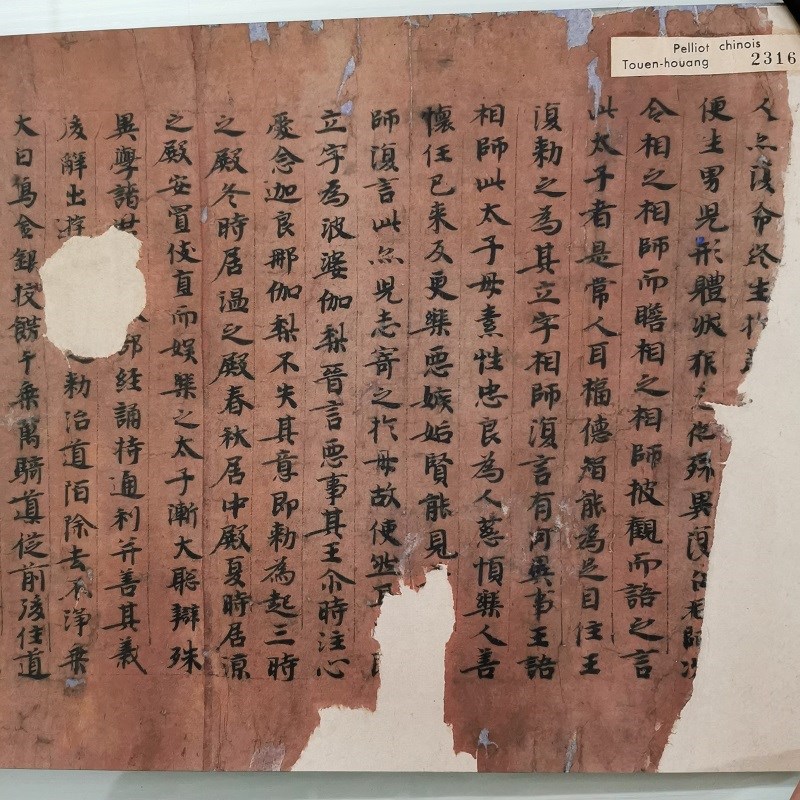 Pelliot chinois
Touen-houang 2316
人亦復命終生
便生男兒形體狀狠殊異復召相師
令相之相師而瞻相之相師披觀而語之言
此太子者是常人耳福德智能為足目往王
復勑之為其立字相師復言有何異事王語
相師此太子母素性忠良為人慈愼樂人善
懷任已來反更樂惡嫉妬賢能見
師復言此亦兒志寄之於母故使然耳
立字為波婆伽梨晉言惡事其王尒時注心
愛念迦良那伽梨不失其意即勑為起三時
之殿冬時居溫之殿春秋居中殿夏時居涼
之殿安置伎直而娛樂之太子漸大聡辯殊
異學諸世部經誦持通利并善其義
後解出遊勑治道陌除去不淨乗
大白烏金銀挍餝千乗萬騎𨗿從前後住道